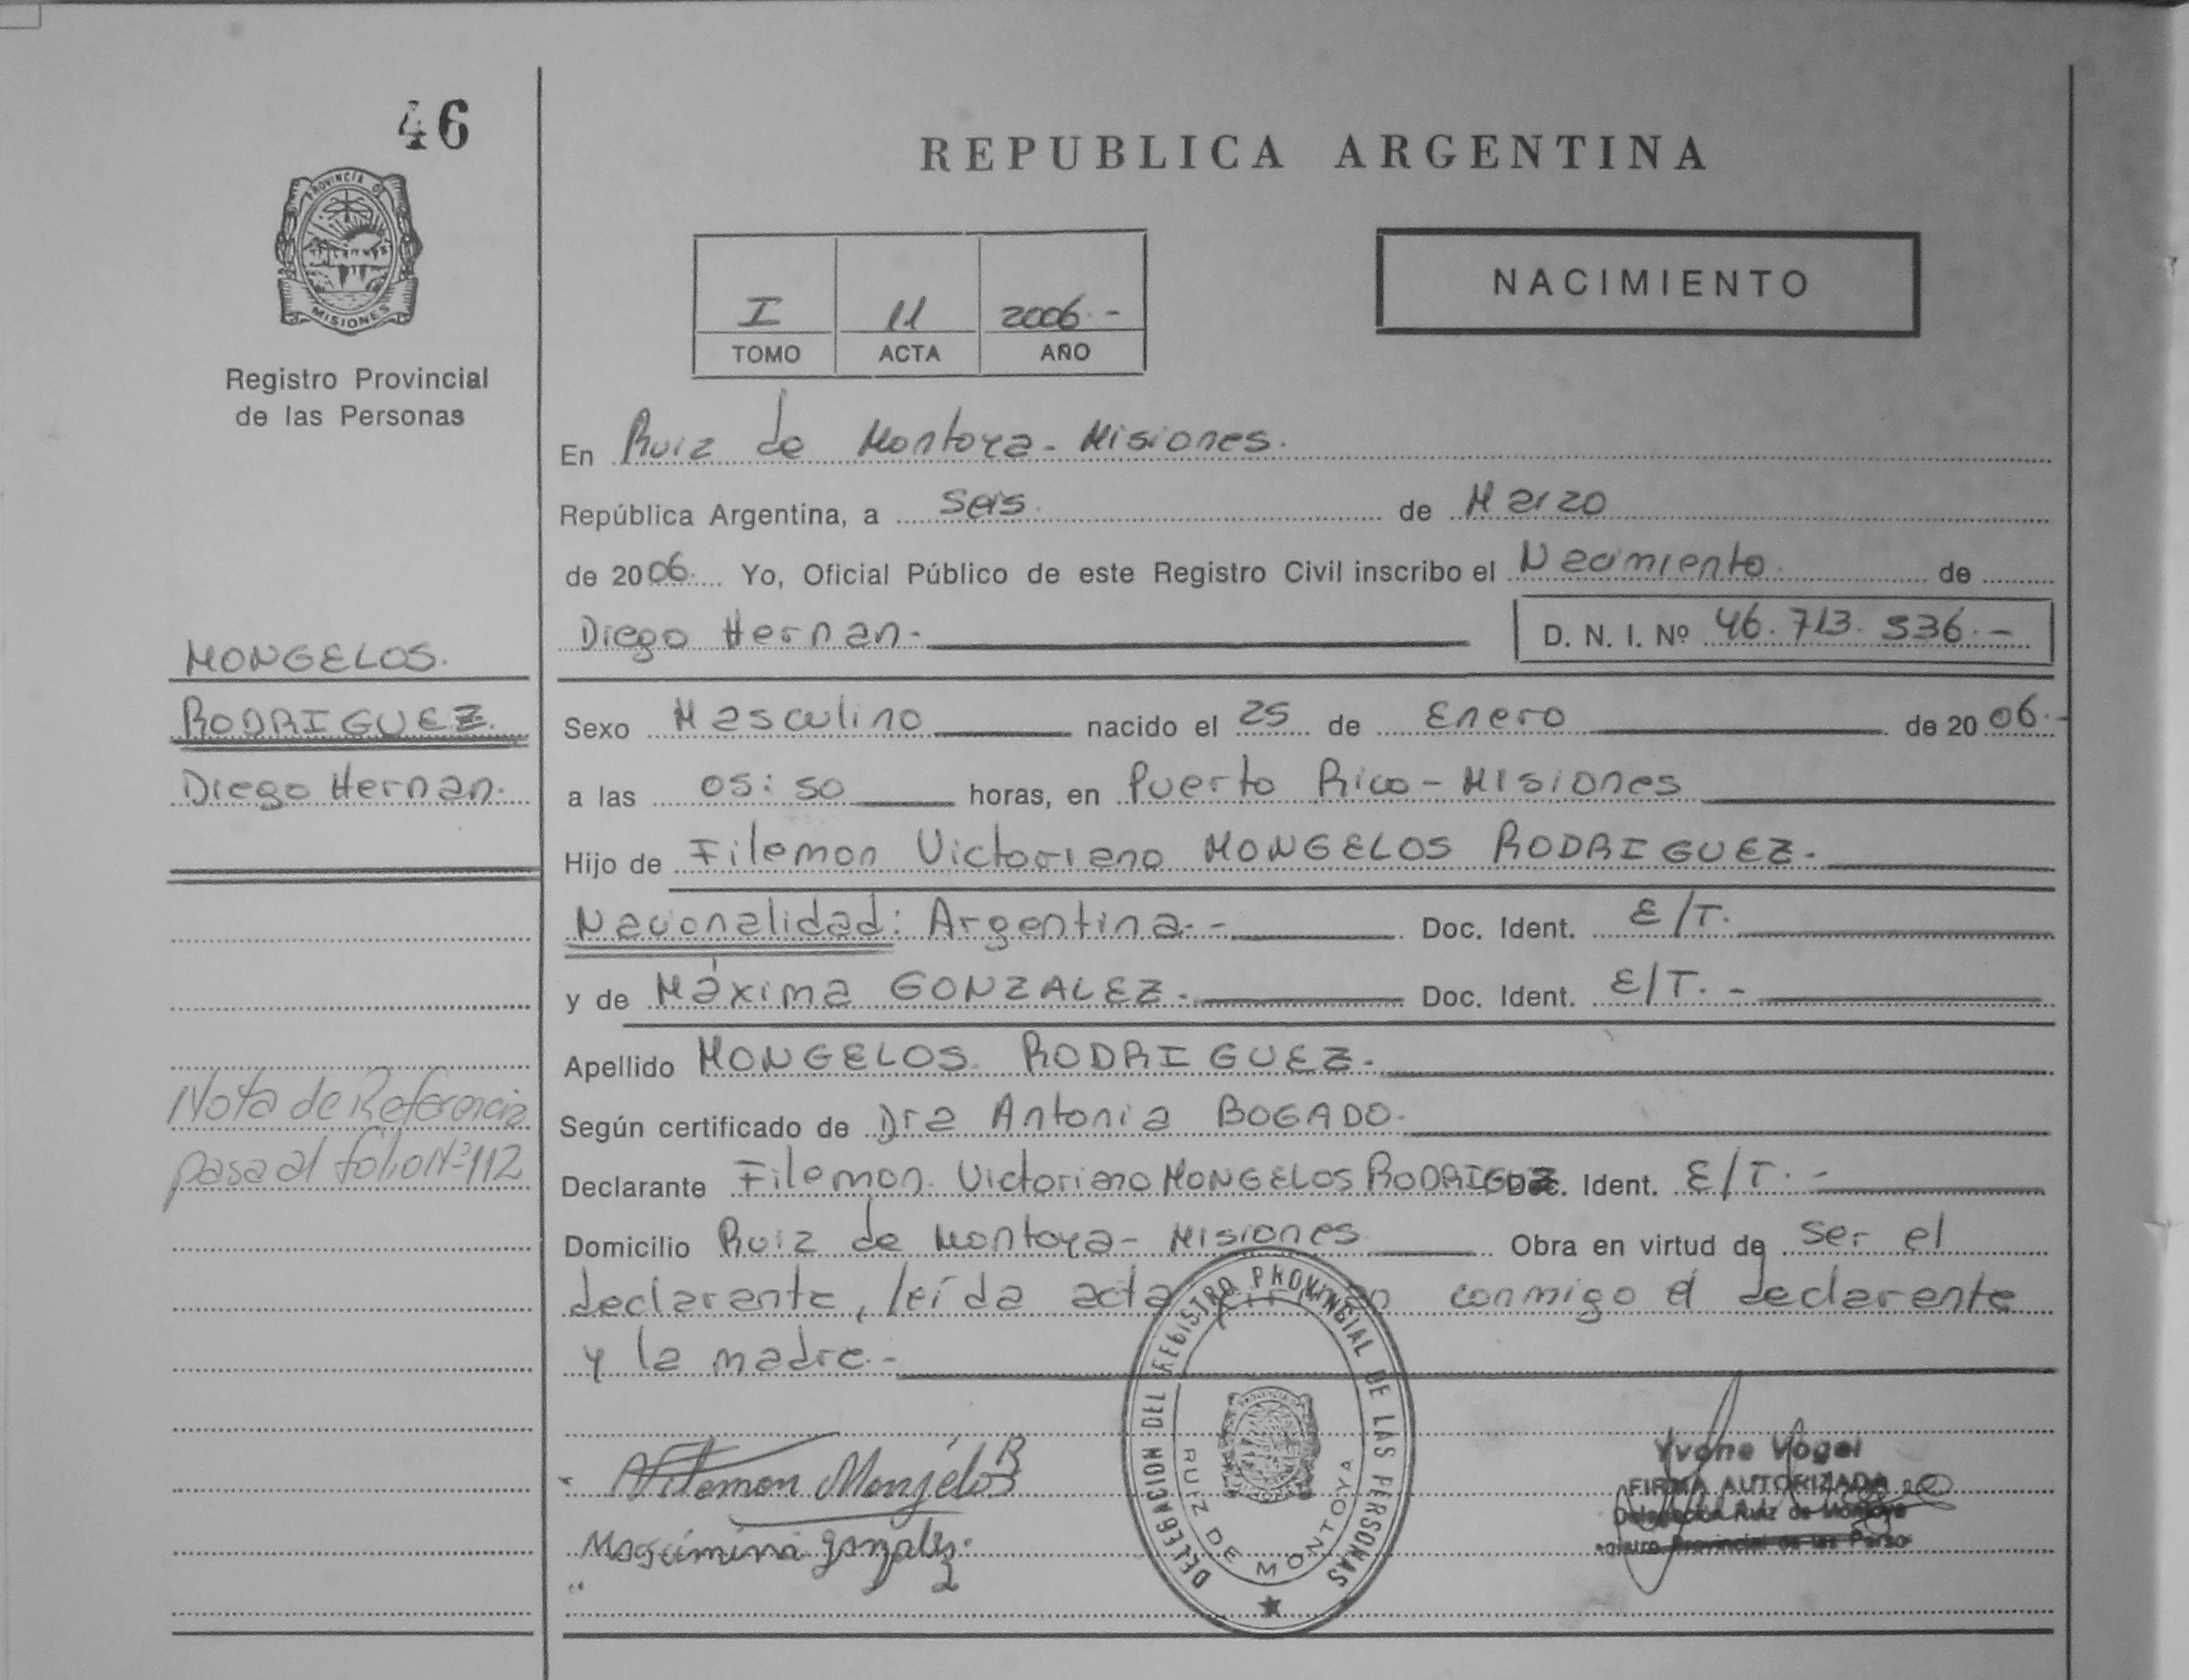 46
PROVINCIA DE
MISIONES
Registro Provincial
de las Personas
MONGELOS.
RODRIGUEZ
Diego Hernan.
Nota de Referencia
pasa al folio Nº 112
REPUBLICA ARGENTINA
NACIMIENTO
I 11 2006.-
TOMO ACTA AÑO
En Ruiz de Montoya - Misiones.
República Argentina, a seis. de Marzo
de 2006. Yo, Oficial Público de este Registro Civil inscribo el Nacimiento de
Diego Hernan.- D. N. I. Nº 46.713.536.-
Sexo Masculino nacido el 25 de Enero de 2006.-
a las 05:50 horas, en Puerto Rico - Misiones
Hijo de Filemon Victoriano MONGELOS RODRIGUEZ.
Nacionalidad: Argentina.- Doc. Ident. E/T.
y de Máxima GONZALEZ. Doc. Ident. E/T. -
Apellido MONGELOS RODRIGUEZ.
Según certificado de Dra Antonia BOGADO.
Declarante Filemon Victoriano MONGELOS RODRIGUEZ Doc. Ident. E/T. -
Domicilio Ruiz de Montoya - Misiones Obra en virtud de ser el
declarante, leída acta conmigo el declarante
y la madre.-
DELEGACION DEL REGISTRO PROVINCIAL DE LAS PERSONAS
RUIZ DE MONTOYA
Filemon Mongelos R
Gonzalez
Yvone Vogel
FIRMA AUTORIZADA
Delegación Ruiz de Montoya
Provincial de las Perso